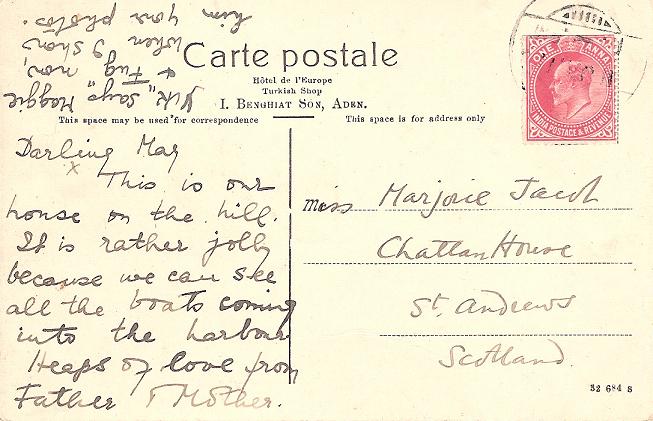 Carte postale
Hôtel de l'Europe
Turkish Shop
I. BENGHIAT SON, ADEN.
This space may be used for correspondence
This space is for address only
ONE ANNA
INDIA POSTAGE & REVENUE
Darling May
x
This is our
house on the hill.
It is rather jolly
because we can see
all the boats coming
into the harbour
Heaps of love from
Father & Mother.
says Maggie
& Fug now,
when I show
him your photos.
Miss Marjorie Jacob
Chattan House
St. Andrews
Scotland.
32 684 S